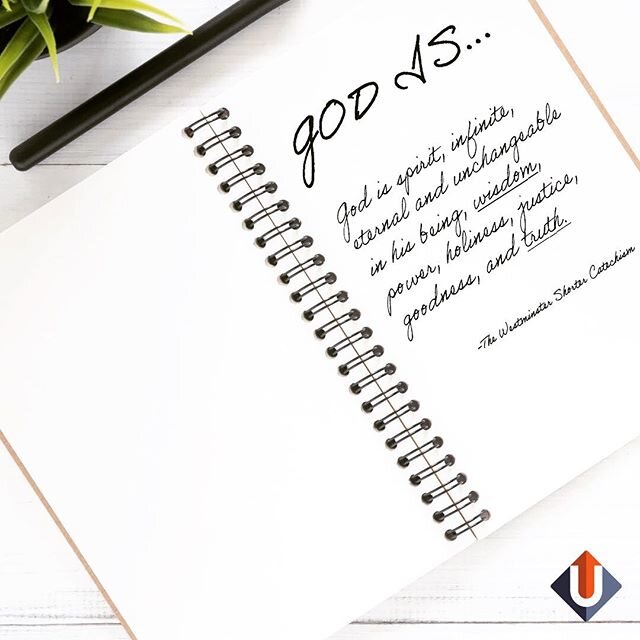 GOD IS...
God is spirit, infinite,
eternal and unchangeable
in his being, wisdom,
power, holiness, justice,
goodness, and truth.
-The Westminster Shorter Catechism
U